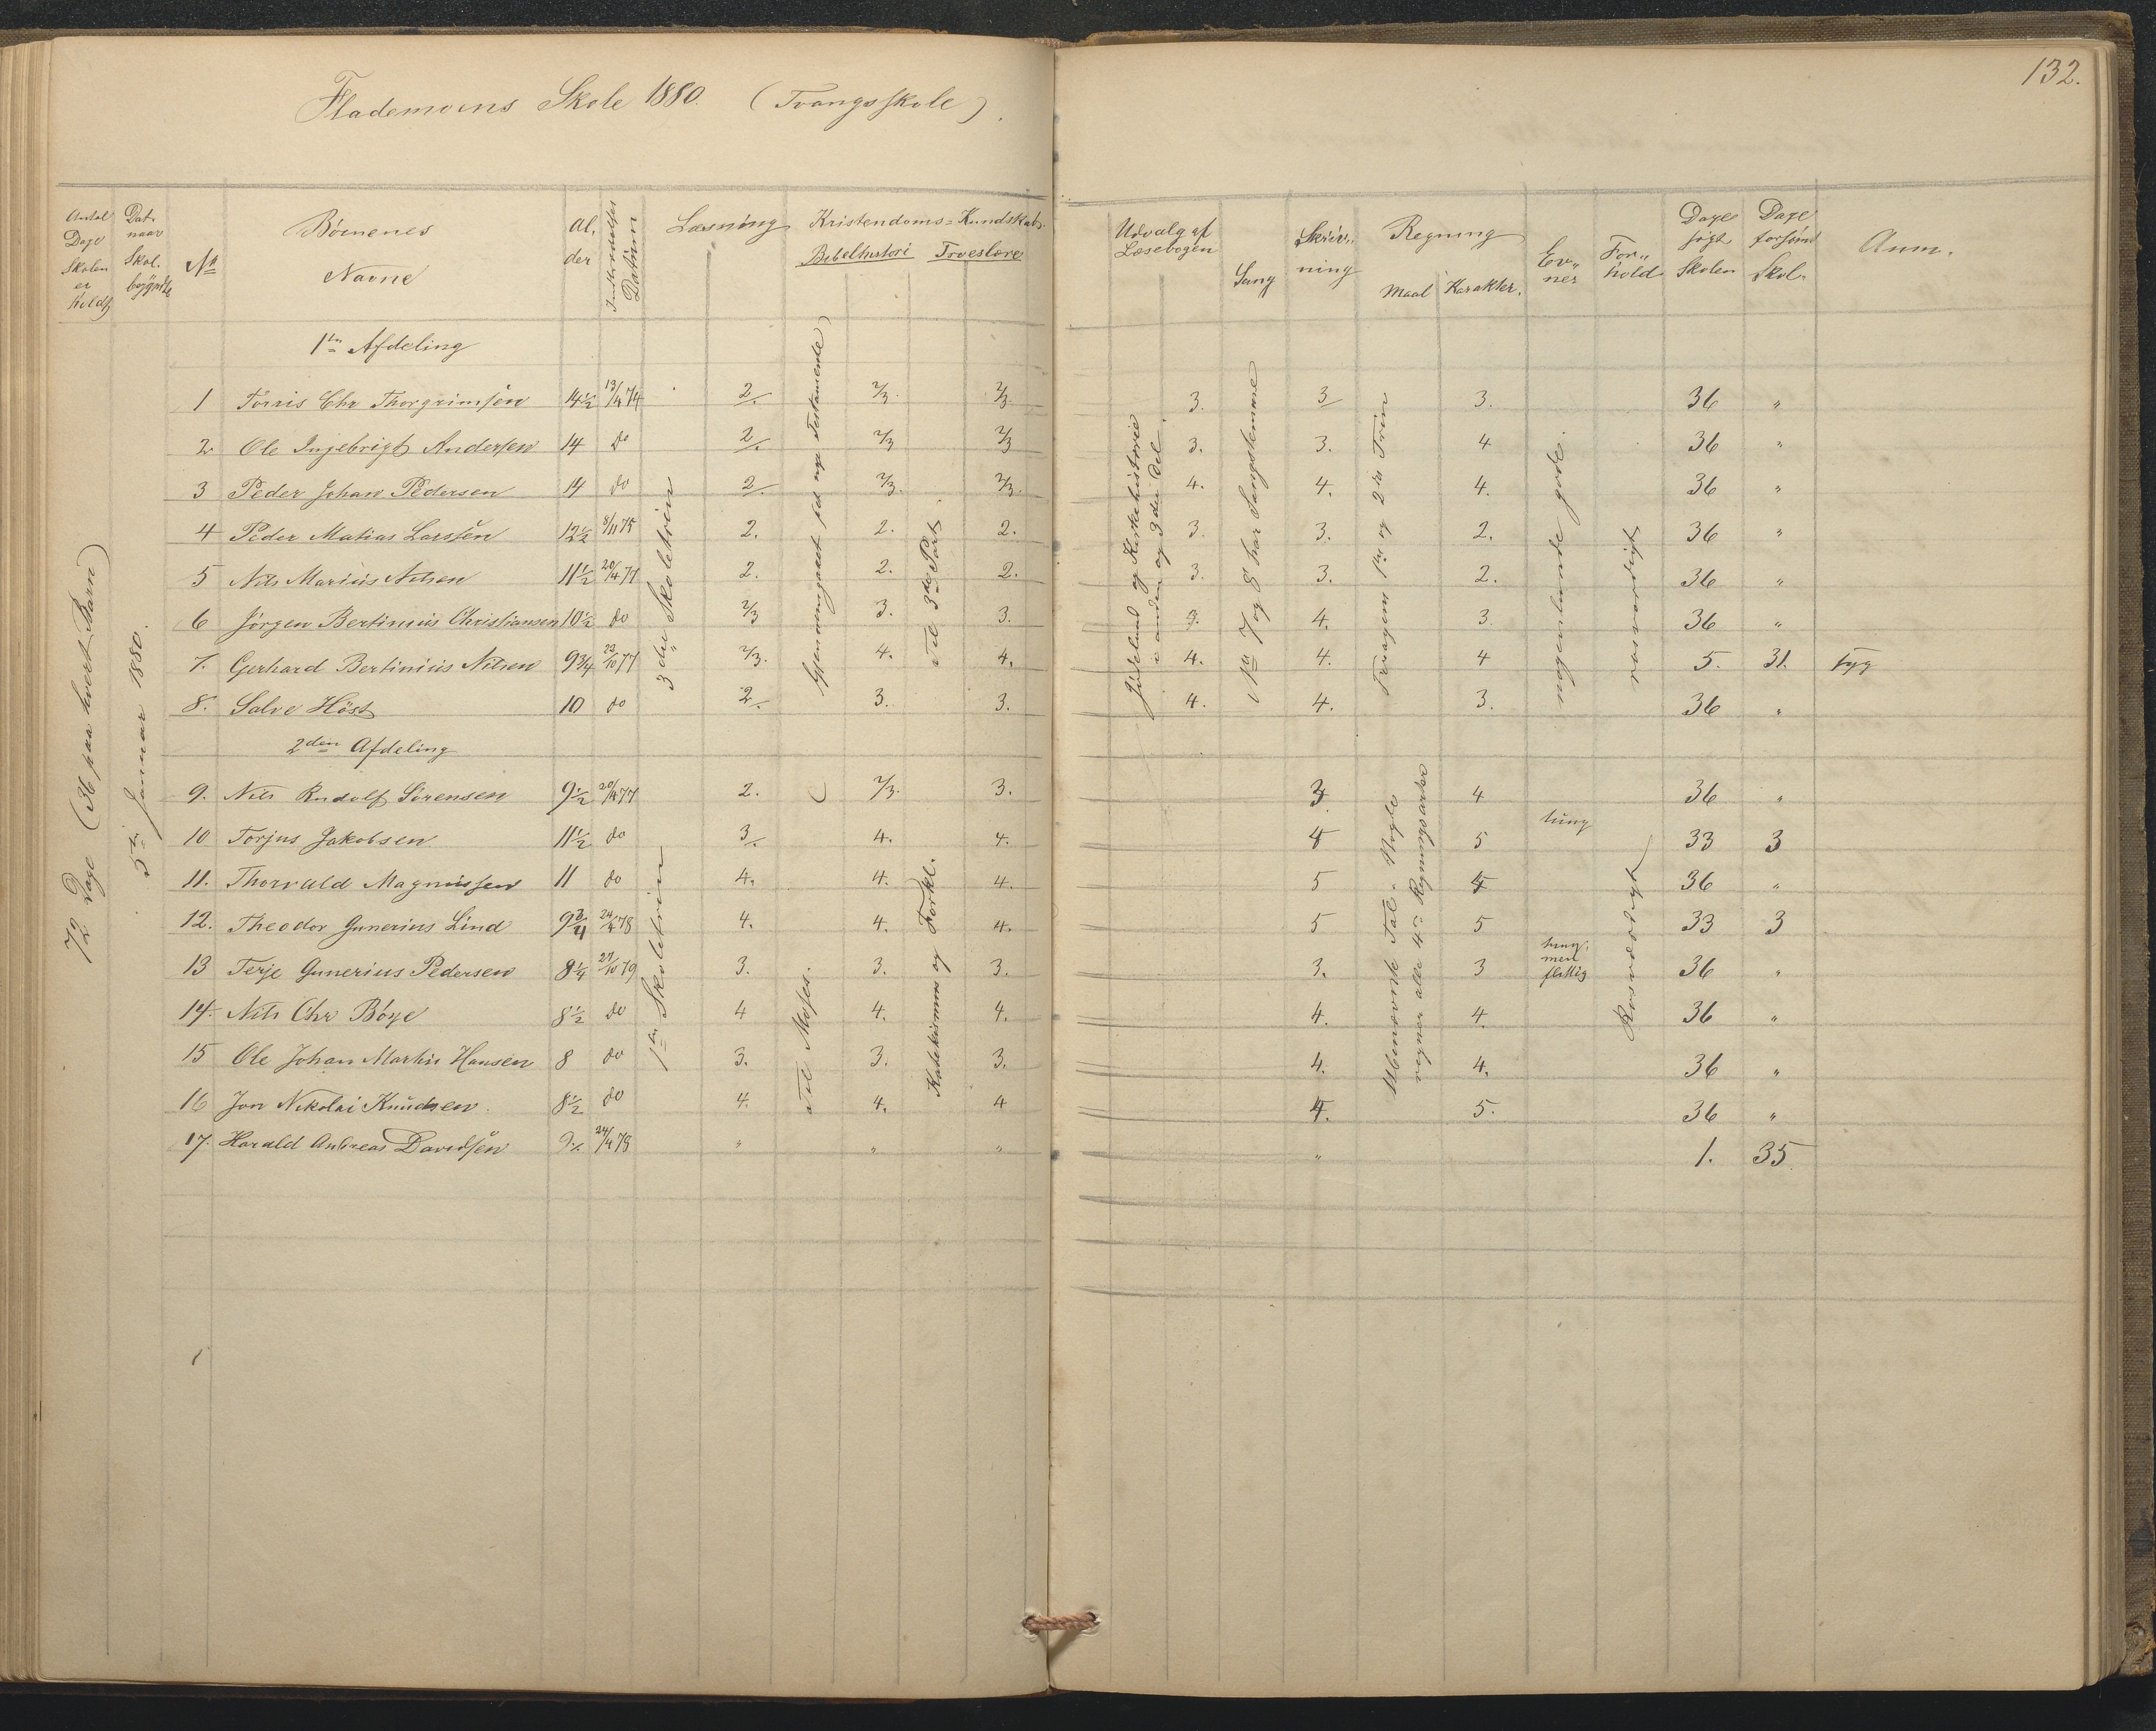 132.
Flademoens Skole 1880. (Tvangsskole).
Antal Dage Skolen er holdt
Dat. naar Skol. begyndte
No
Børnenes Navne
Al, der
Indtrædelses Datum
Læsning
Kristendoms-Kundskab.
Bibelhistori Troeslære
Udvalg af Læsebogen
Sang
Skriv,, ning
Regning
Maal Karakter.
Ev,, ner
For,, hold
Dage søgt Skolen
Dage forsømt Skol.
Anm.
72 Dage (36 paa hvert Barn)
5te Januar 1880.
1ste Afdeling
3die Skoletrin
Gjennemgaaet det nye Testamente
Til 3die Part.
Jödeland og Kirkehistorie
i anden og 3die Del.
No 7 og 8 har Sangstemme
1ste og 2det Trin
nogenlunde gode.
rosværdigt
1 Torris Chr Thorgrimsen 14½ 13/4 74 2/. 2/3. 2/3. 3. 3/ 3. 36 "
2 Ole Ingebrigt Andersen 14 do 2/. 2/3 2/3 3. 3. 4 36 "
3 Peder Johan Pedersen 14 do 2/. 2/3. 2/3. 4. 4. 4. 36 "
4 Peder Matias Larssen 12½ 8/11 75 2. 2. 2. 3. 3. 2. 36 "
5 Nils Marius Nilsen 11½ 20/4 77 2. 2. 2. 3. 3. 2. 36 "
6 Jörgen Bertinius Christiansen 10½ do 2/3 3. 3. 3. 4. 3 36 "
7. Gerhard Bertinius Nilsen 9¾ 23/10 77 2/3. 4. 4. 4. 4. 4 5. 31. syg
8. Salve Höst 10 do 2/. 3. 3. 4. 4. 3. 36 "
2den Afdeling
1ste Skoletrin
Til Moses.
Katekismus og Forkl.
Ubenævnte Tal.
regner alle 4re Regningsarter
Rosværdigt
9. Nils Rudolf Sörensen 9½ 20/4 77 2. 2/3. 3. 3. 4 36 "
10 Torjus Jakobsen 11½ do 3/. 4. 4. 4 5 tung 33 3
11. Thorvald Magnussen 11 do 4. 4. 4. 5 4 36 "
12. Theodor Gunerius Lind 9¾ 24/4 78 4. 4. 4. 5 5 33 3
13 Terje Gunerius Pedersen 8¼ 27/10 79 3. 3. 3. 3. 3 tung, men flittig 36 "
14. Nils Chr Böye 8½ do 4 4. 4. 4. 4. 36 "
15 Ole Johan Martin Hansen 8 do 3. 3. 3. 4. 4. 36 "
16 Jon Nikolai Knudsen 8½ do 4. 4. 4 4. 5. 36 "
17. Harald Andreas Davidsen 9½ 24/4 78 " " " " 1. 35